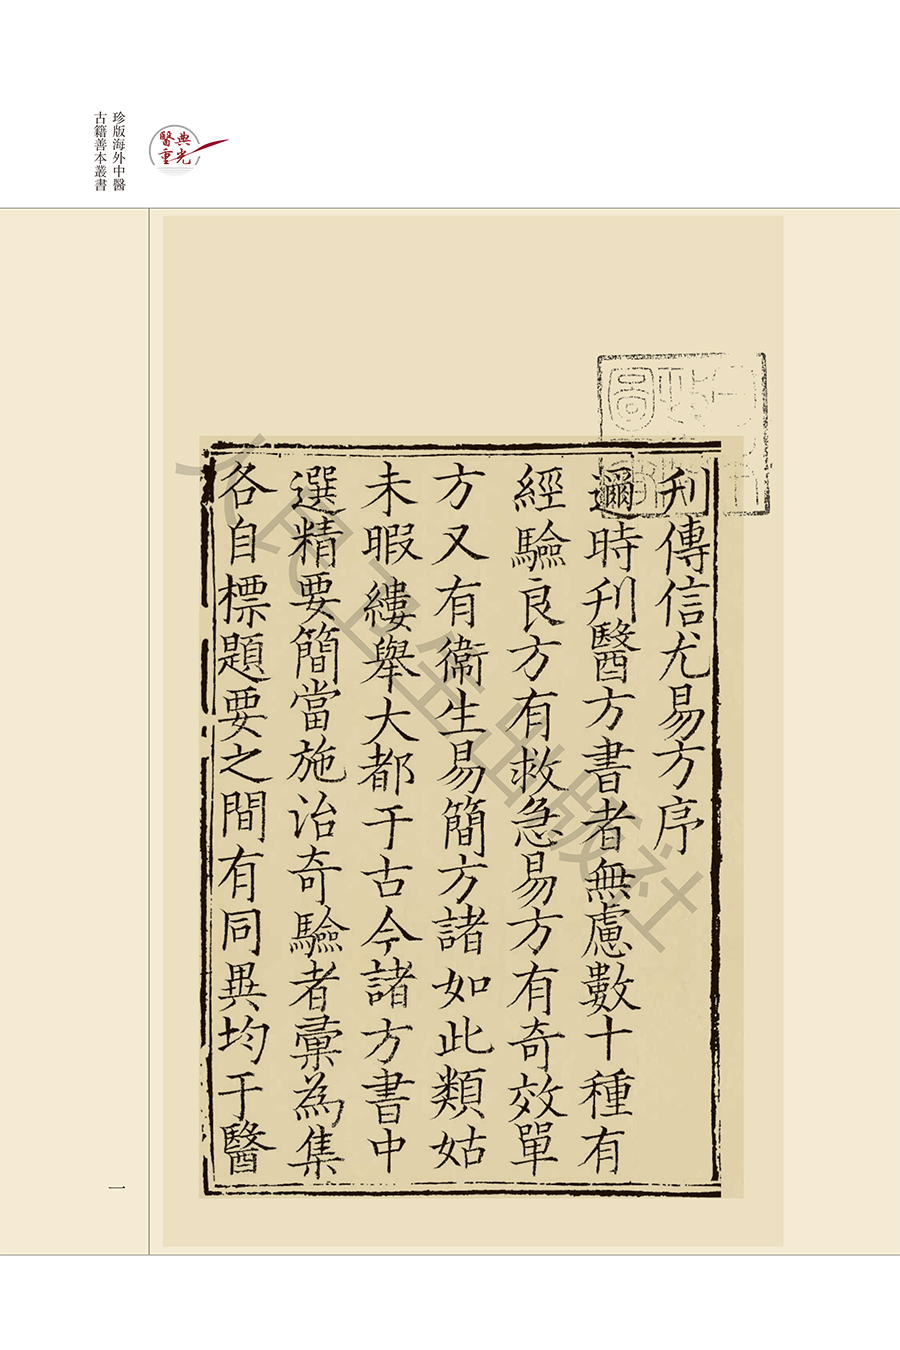 珍版海外中醫
古籍善本叢書
醫典
重光
刋傳信尤易方序
邇時刋醫方書者無慮數十種有
經驗良方有救急易方有奇效單
方又有衞生易簡方諸如此類姑
未暇縷舉大都于古今諸方書中
選精要簡當施治奇驗者彙為集
各自標題要之間有同異均于醫
人民卫生出版社
一